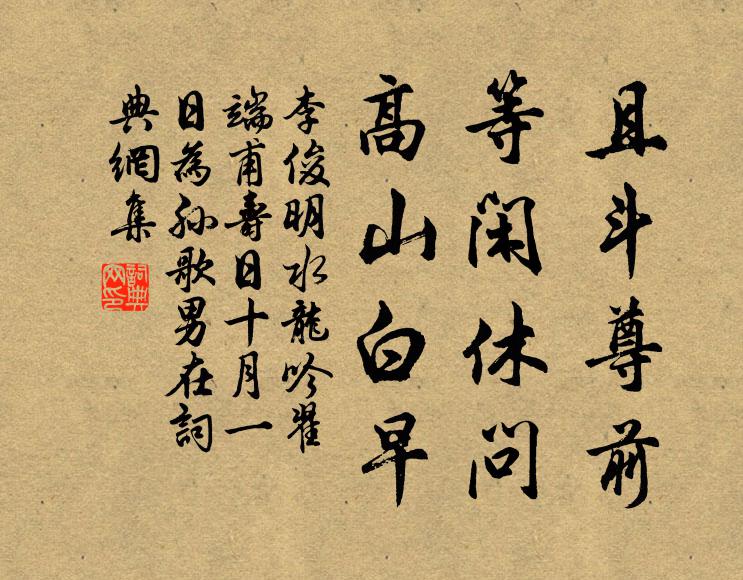 且斗尊前
等閑休問
髙山白早
李俊明水龍吟翟
端甫壽日十月一
日為孫歌男在詞
典網集
詞典
网印